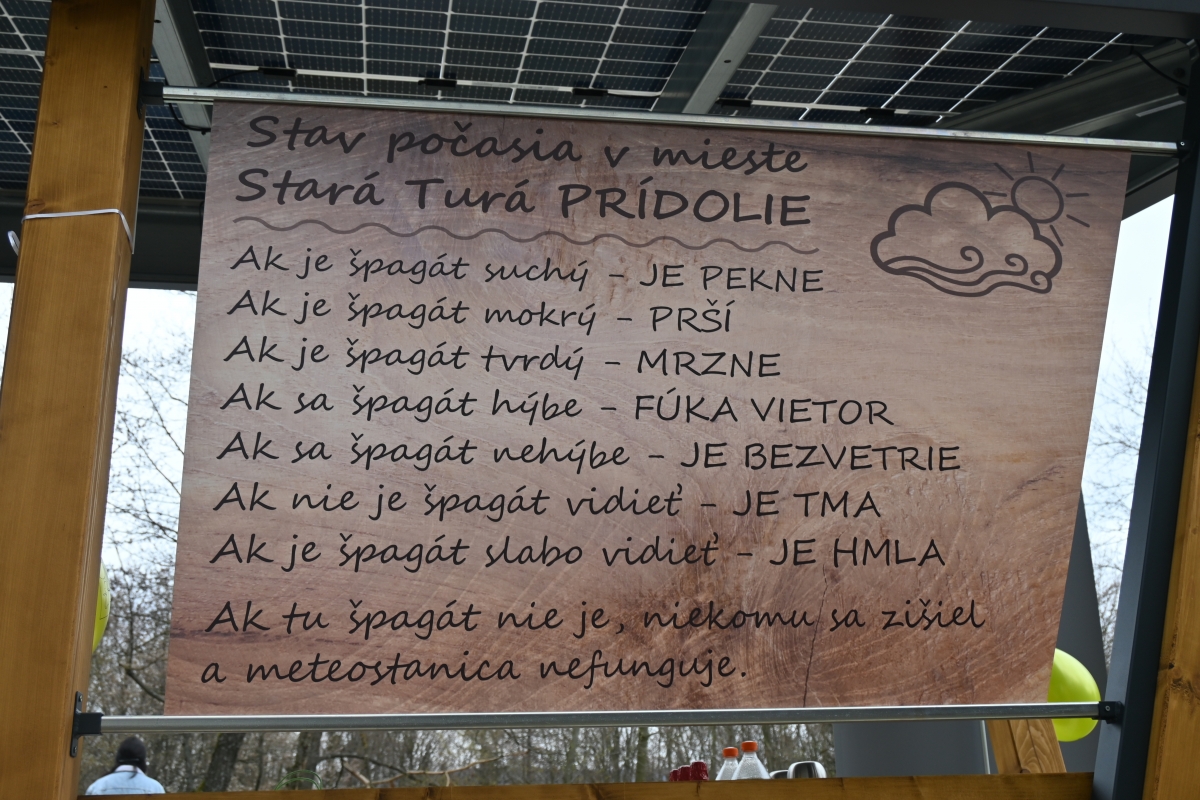 Stav počasia v mieste
Stará Turá PRÍDOLIE
Ak je špagát suchý - JE PEKNE
Ak je špagát mokrý - PRŠÍ
Ak je špagát tvrdý - MRZNE
Ak sa špagát hýbe - FÚKA VIETOR
Ak sa špagát nehýbe - JE BEZVETRIE
Ak nie je špagát vidieť - JE TMA
Ak je špagát slabo vidieť - JE HMLA
Ak tu špagát nie je, niekomu sa zišiel
a meteostanica nefunguje.